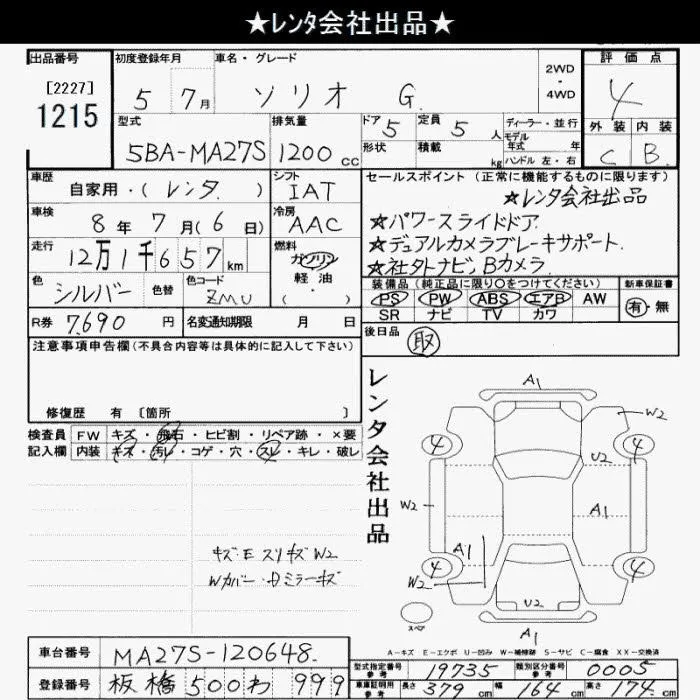 ★レンタ会社出品★
出品番号 初度登録年月 車名・グレード 2WD・4WD 評価点
[2227] 1215 5年 7月 ソリオ G 4
型式 排気量 ドア 5 定員 5人 ディーラー・並行 外装 内装
モデル年式 年
5BA-MA27S 1200cc 形状 積載 kg ハンドル 左・右 C B
車歴 シフト セールスポイント (正常に機能するものに限ります)
自家用・(レンタ) IAT ★レンタ会社出品
車検 冷房 ★パワースライドドア
8年 7月(6日) AAC ★デュアルカメラブレーキサポート
走行 燃料 ★社外ナビ,Bカメラ
12万1千657km ガソリン・軽油・( )
色 色替 色コード 装備品(純正品に限り○をつけてください) 新車保証書
シルバー ZMU PS PW ABS エアB AW 有・無
SR ナビ TV カワ
R券 7,690円 名変通知期限 月 日 後日品 取
注意事項申告欄(不具合内容等は具体的に記入して下さい)
修復歴 有 [箇所 ]
検査員 FW キズ・飛石・ヒビ割・リペア跡・×要
記入欄 内装 キズ・汚レ・コゲ・穴・スレ・キレ・破レ
レンタ会社出品
A1
W2
4 4
U2
W2 A1
A1
4 W2 4
U2
スペア A1
キズ・E スリキズW2
Wカバー・Dミラーキズ
A-キズ E-エクボ U-凹み W-補修跡 S-サビ C-腐食 XX-交換済
車台番号 MA27S-120648 型式指定番号 参考 19735 類別区分番号 参考 0005
登録番号 板橋500わ999 車庫証明用 参考 長さ 379cm 幅 164cm 高さ 174cm